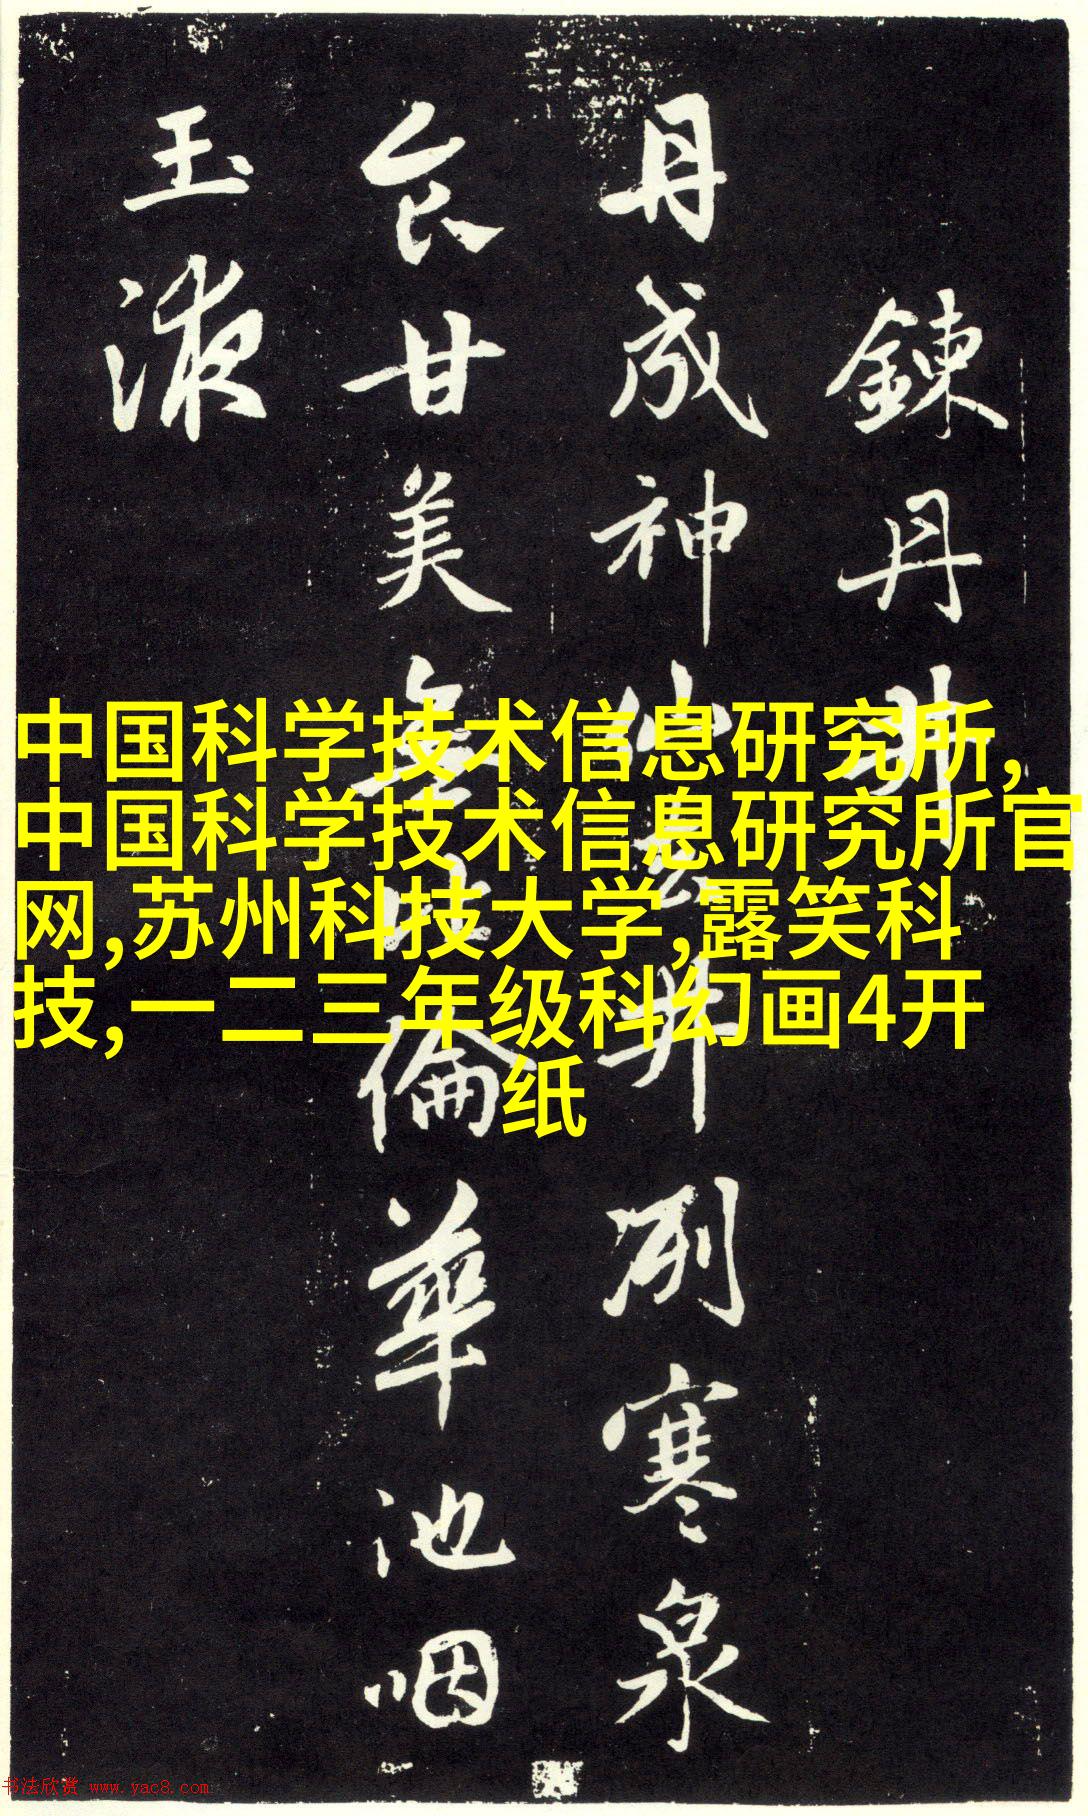 鍊丹井
丹成神仙去井冽寒泉
食甘美無比倫華池咽
玉液
中国科学技术信息研究所,
中国科学技术信息研究所官
网,苏州科技大学,露笑科
技,一二三年级科幻画4开
纸
书法欣赏 www.yac8.com